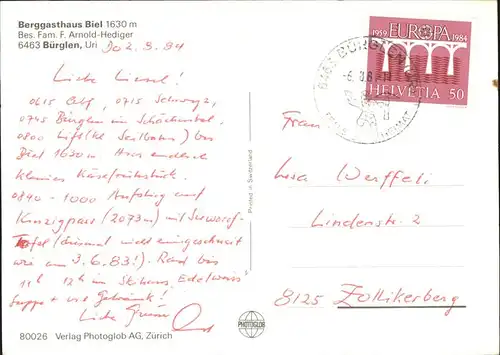 Berggasthaus Biel 1630 m
Bes. Fam. F. Arnold-Hediger
6463 Bürglen, Uri
Liebe Liesel!
0615 0715 Schwyz,
0745 Bürglen im Schächental
0800 Lift (kl. Seilbahn) bis
Biel 1630 m
kleines Käsefrühstück.
0840 - 1000 Aufstieg auf
Kinzigpass (2073 m) mit Suworof-
Tafel (diesmal nicht eingeschneit
wie am 3.6.83!). Rast bis
11h 12h im Skihaus Edelweiss
Suppe + viel Getränk!
Liebe Grüsse
80026 Verlag Photoglob AG, Zürich
Printed in Switzerland
PHOTOGLOB
1959 EUROPA 1984
HELVETIA 50
6463 BÜRGLEN
Frau
Werffeli
Lindenstr. 2
8125 Zollikerberg